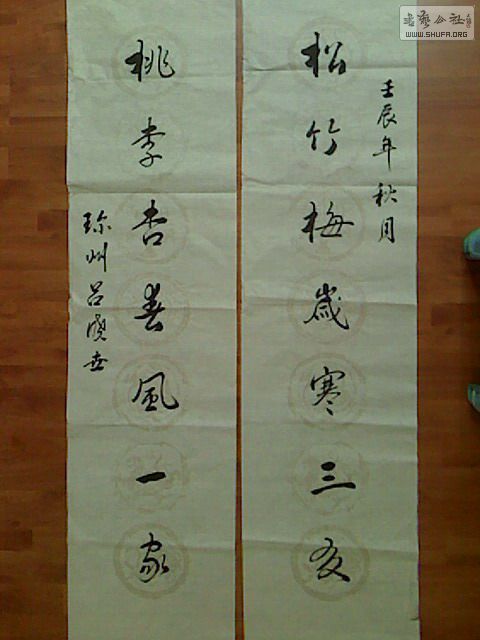 壬辰年秋月
松竹梅歲寒三友
桃李杏春風一家
珎州呂曉世
书艺公社
WWW.SHUFA.ORG